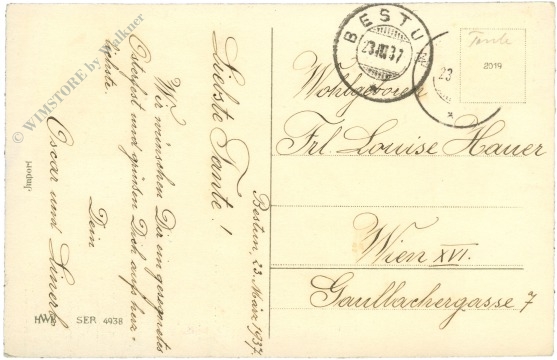 Bestun, 23. März 1937.
Liebste Tante!
Wir wünschen Dir ein gesegnetes
Osterfest und grüßen Dich aufs herz-
lichste.
Dein
Oscar und
Import
HWB SER 4938
© WIMSTORE by Walkner
BESTU
23.III.37
23
Tante
2019
Wohlgeboren
Frl. Louise Hauer
Wien XVI.
Gaullachergasse 7